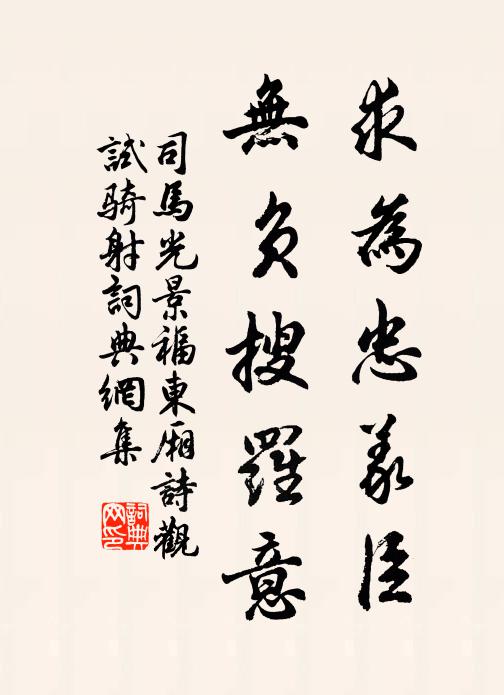 求為忠義臣
無負搜羅意
司馬光景福東廂詩觀
試騎射詞典網集
詞典网印